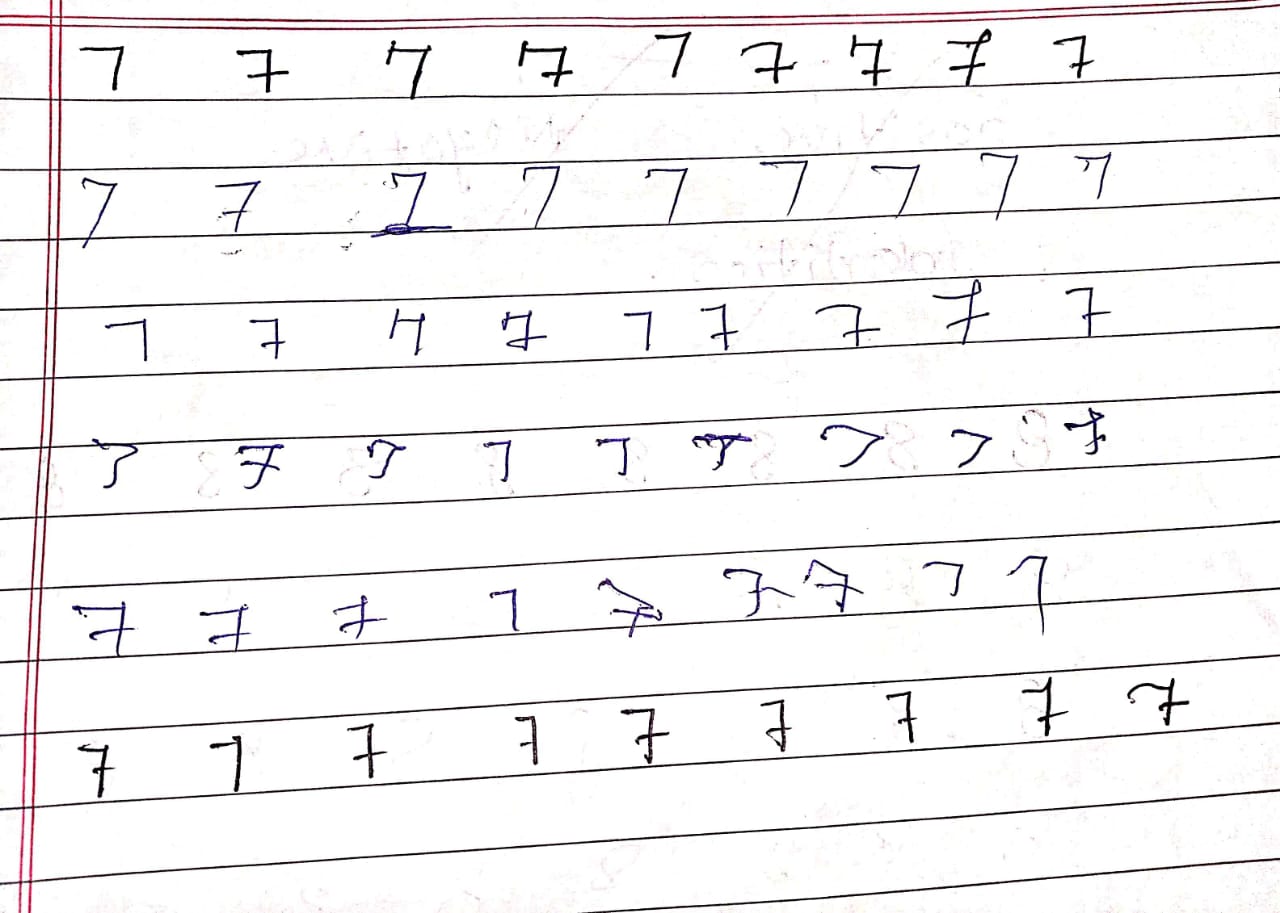 7 7 7 7 7 7 7 7 7
7 7 7 7 7 7 7 7 7
7 7 7 7 7 7 7 7 7
7 7 7 7 7 7 7 7 7
7 7 7 7 7 7 7 7 7
7 7 7 7 7 7 7 7 7